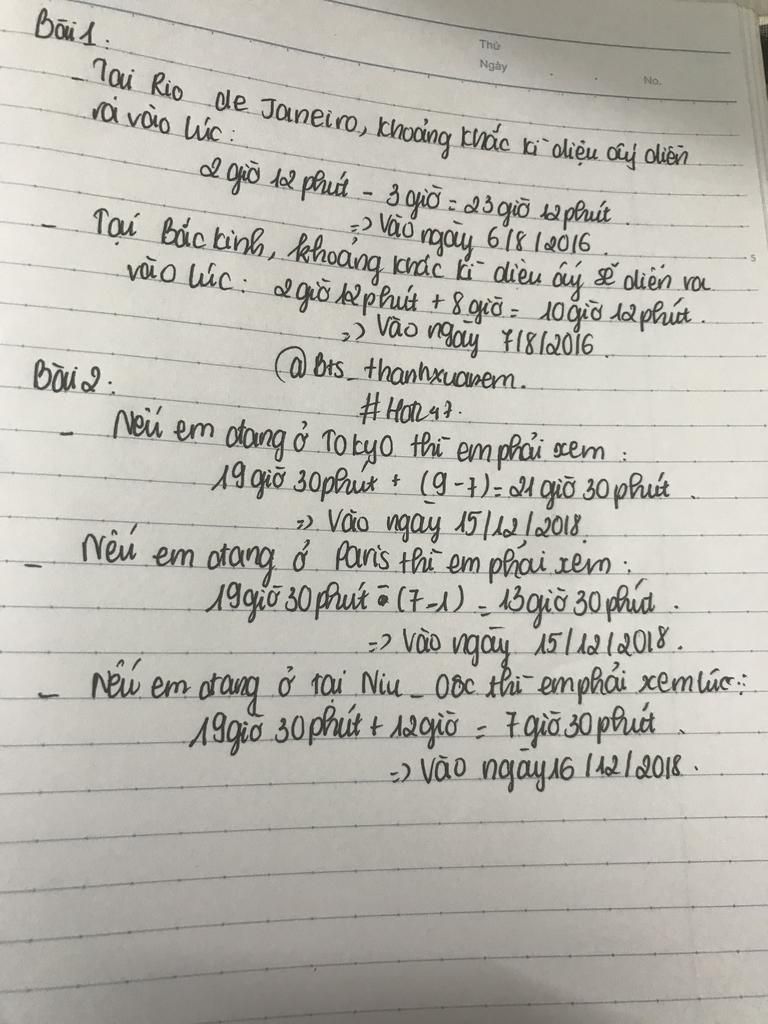 Thứ
Ngày
No.
Bài 1:
- Tại Rio de Janeiro, khoảng khắc kì diệu ấy diễn
ra vào lúc:
2 giờ 12 phút - 3 giờ = 23 giờ 12 phút.
=> Vào ngày 6/8/2016.
- Tại Bắc Kinh, khoảng khắc kì diệu ấy sẽ diễn ra
vào lúc: 2 giờ 12 phút + 8 giờ = 10 giờ 12 phút.
=> Vào ngày 7/8/2016
@Bts_thanhxuanem.
Bài 2:
#Hoz47.
- Nếu em đang ở Tokyo thì em phải xem:
19 giờ 30 phút + (9-7) = 21 giờ 30 phút.
=> Vào ngày 15/12/2018.
- Nếu em đang ở Paris thì em phải xem:
19 giờ 30 phút - (7-1) = 13 giờ 30 phút.
=> Vào ngày 15/12/2018.
- Nếu em đang ở tại Niu_Oóc thì em phải xem lúc:
19 giờ 30 phút + 12 giờ = 7 giờ 30 phút.
=> Vào ngày 16/12/2018.